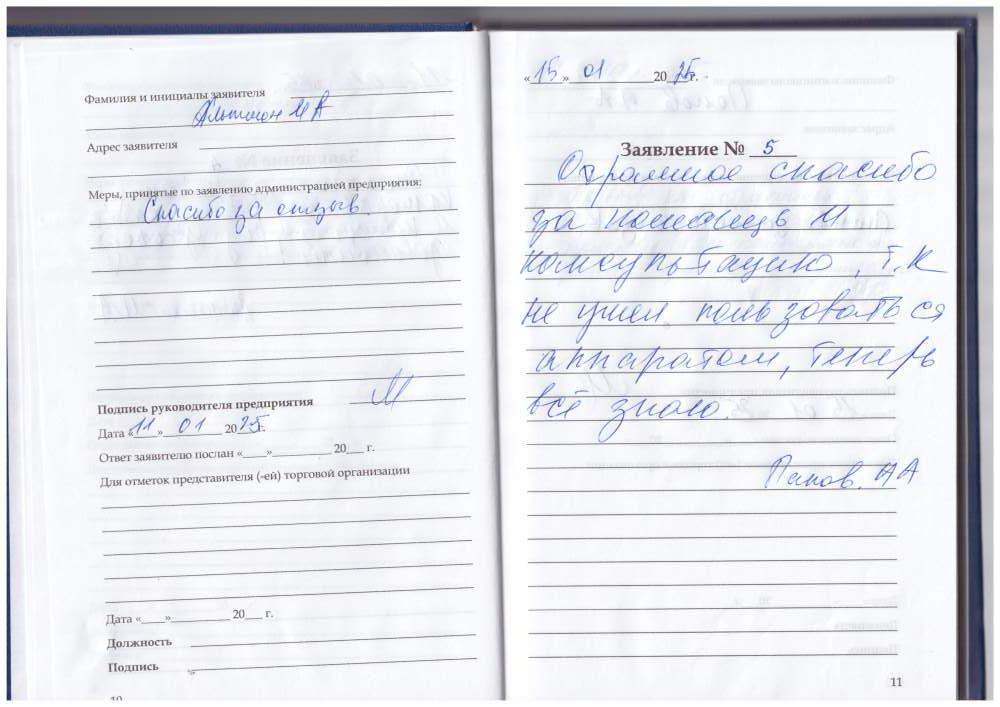 Фамилия и инициалы заявителя
Альтман М А
Адрес заявителя
Меры, принятые по заявлению администрацией предприятия:
Спасибо за отзыв.
Подпись руководителя предприятия
Дата «11» 01 2025г.
Ответ заявителю послан «____»__________ 20___ г.
Для отметок представителя (-ей) торговой организации
Дата «____»__________ 20___ г.
Должность
Подпись
10
«15» 01 2025г.
Заявление № 5
Огромное спасибо
за помощь и
консультацию, т.к
не умел пользоваться
аппаратом, теперь
всё знаю.
Панов. АА
11